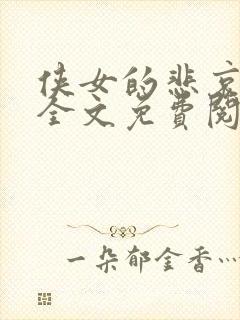 侠女的悲哀
全文免費閱
一朵郁金香…